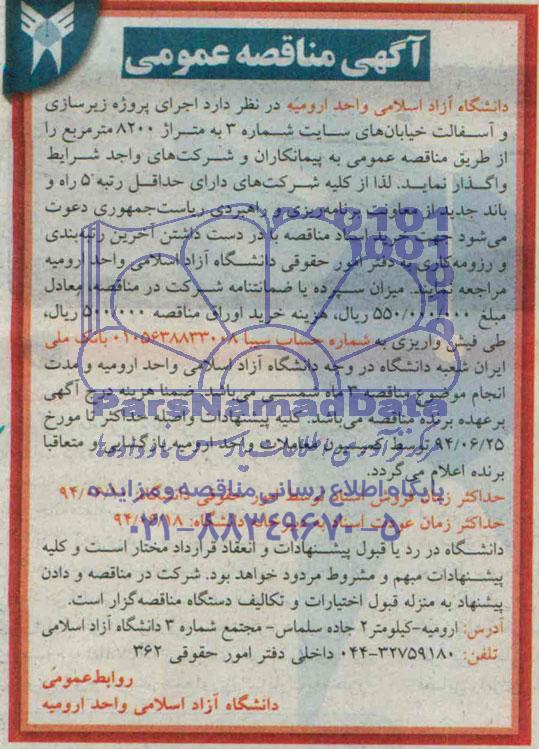 آگهی مناقصه عمومی
دانشگاه آزاد اسلامی واحد ارومیه در نظر دارد اجرای پروژه زیرسازی
و آسفالت خیابان‌های سایت شماره ۳ به متراژ ۸۲۰۰ مترمربع را
از طریق مناقصه عمومی به پیمانکاران و شرکت‌های واجد شرایط
واگذار نماید. لذا از کلیه شرکت‌های دارای حداقل رتبه ۵ راه و
باند جدید از معاونت برنامه‌ریزی و راهبردی ریاست‌جمهوری دعوت
می‌شود جهت خرید اسناد مناقصه با در دست داشتن آخرین رتبه‌بندی
و رزومه‌کاری به دفتر امور حقوقی دانشگاه آزاد اسلامی واحد ارومیه
مراجعه نمایند. میزان سپرده یا ضمانتنامه شرکت در مناقصه، معادل
مبلغ ۵۵۰/۰۰۰/۰۰۰ ریال، هزینه خرید اوراق مناقصه ۵۰۰/۰۰۰ ریال،
طی فیش واریزی به شماره حساب سیبا ۰۱۰۵۶۳۸۸۳۳۰۰۸ بانک ملی
ایران شعبه دانشگاه در وجه دانشگاه آزاد اسلامی واحد ارومیه و مدت
انجام موضوع مناقصه ۳ ماه شمسی می‌باشد. ضمنا هزینه درج آگهی
برعهده برنده مناقصه می‌باشد. کلیه پیشنهادات واصله حداکثر تا مورخ
۹۴/۰۶/۲۵ توسط کمیسیون معاملات واحد ارومیه بازگشایی و متعاقبا
برنده اعلام می‌گردد.
حداکثر زمان فروش اسناد توسط امور حقوقی دانشگاه:
حداکثر زمان عودت اسناد به دبیرخانه دانشگاه: ۹۴/۰۶/۱۸
دانشگاه در رد یا قبول پیشنهادات و انعقاد قرارداد مختار است و کلیه
پیشنهادات مبهم و مشروط مردود خواهد بود. شرکت در مناقصه و دادن
پیشنهاد به منزله قبول اختیارات و تکالیف دستگاه مناقصه‌گزار است.
آدرس: ارومیه-کیلومتر۲ جاده سلماس- مجتمع شماره ۳ دانشگاه آزاد اسلامی
تلفن: ۳۲۷۵۹۱۸۰-۰۴۴ داخلی دفتر امور حقوقی ۳۶۲
روابط‌عمومی
دانشگاه آزاد اسلامی واحد ارومیه
ParsNamadData
پایگاه اطلاع رسانی مناقصه و مزایده
۰۲۱-۸۸۳۴۹۶۷۰-۵